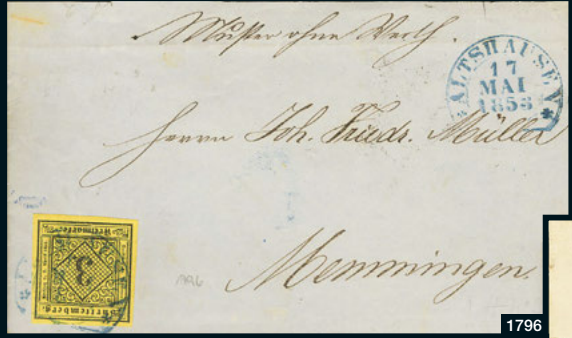 Muster ohne Werth.
ALTSHAUSEN
17
MAI
1853
Herrn Joh. Friedr. Müller
Memmingen.
Freimarke
3
Württemberg
1796